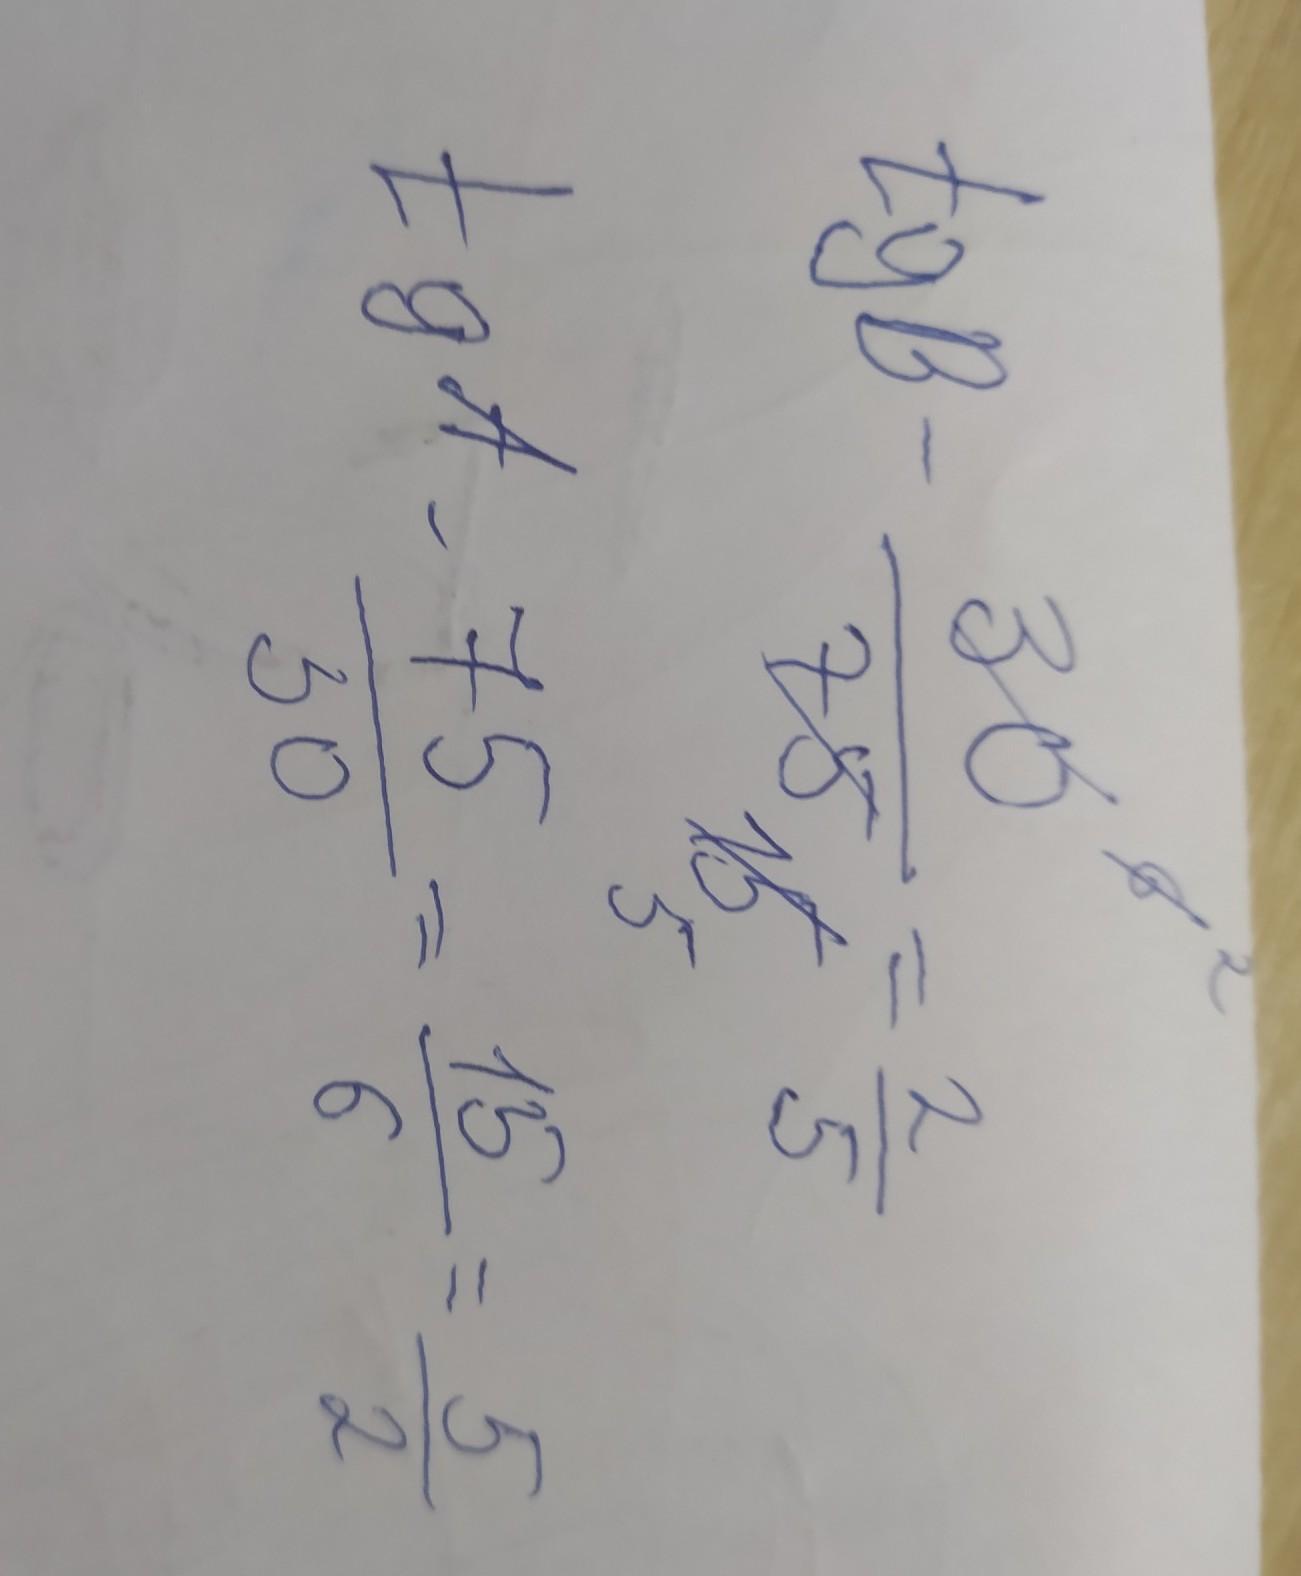 tgB - 30/75 = 2/5
6 2
15
5
tgA - 75/30 = 15/6 = 5/2